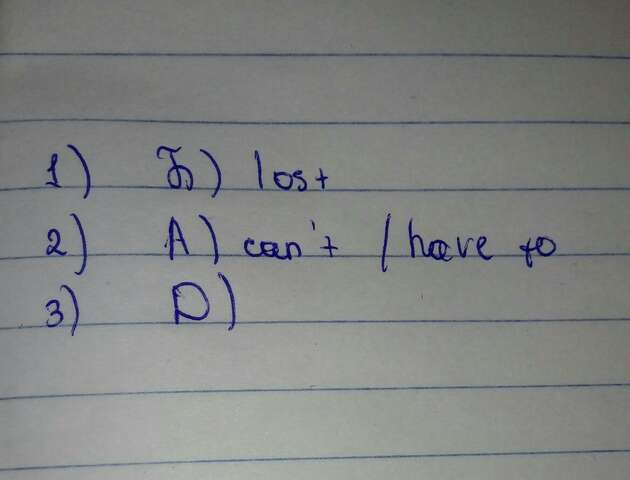 1) Б) lost
2) A) can't / have to
3) D)